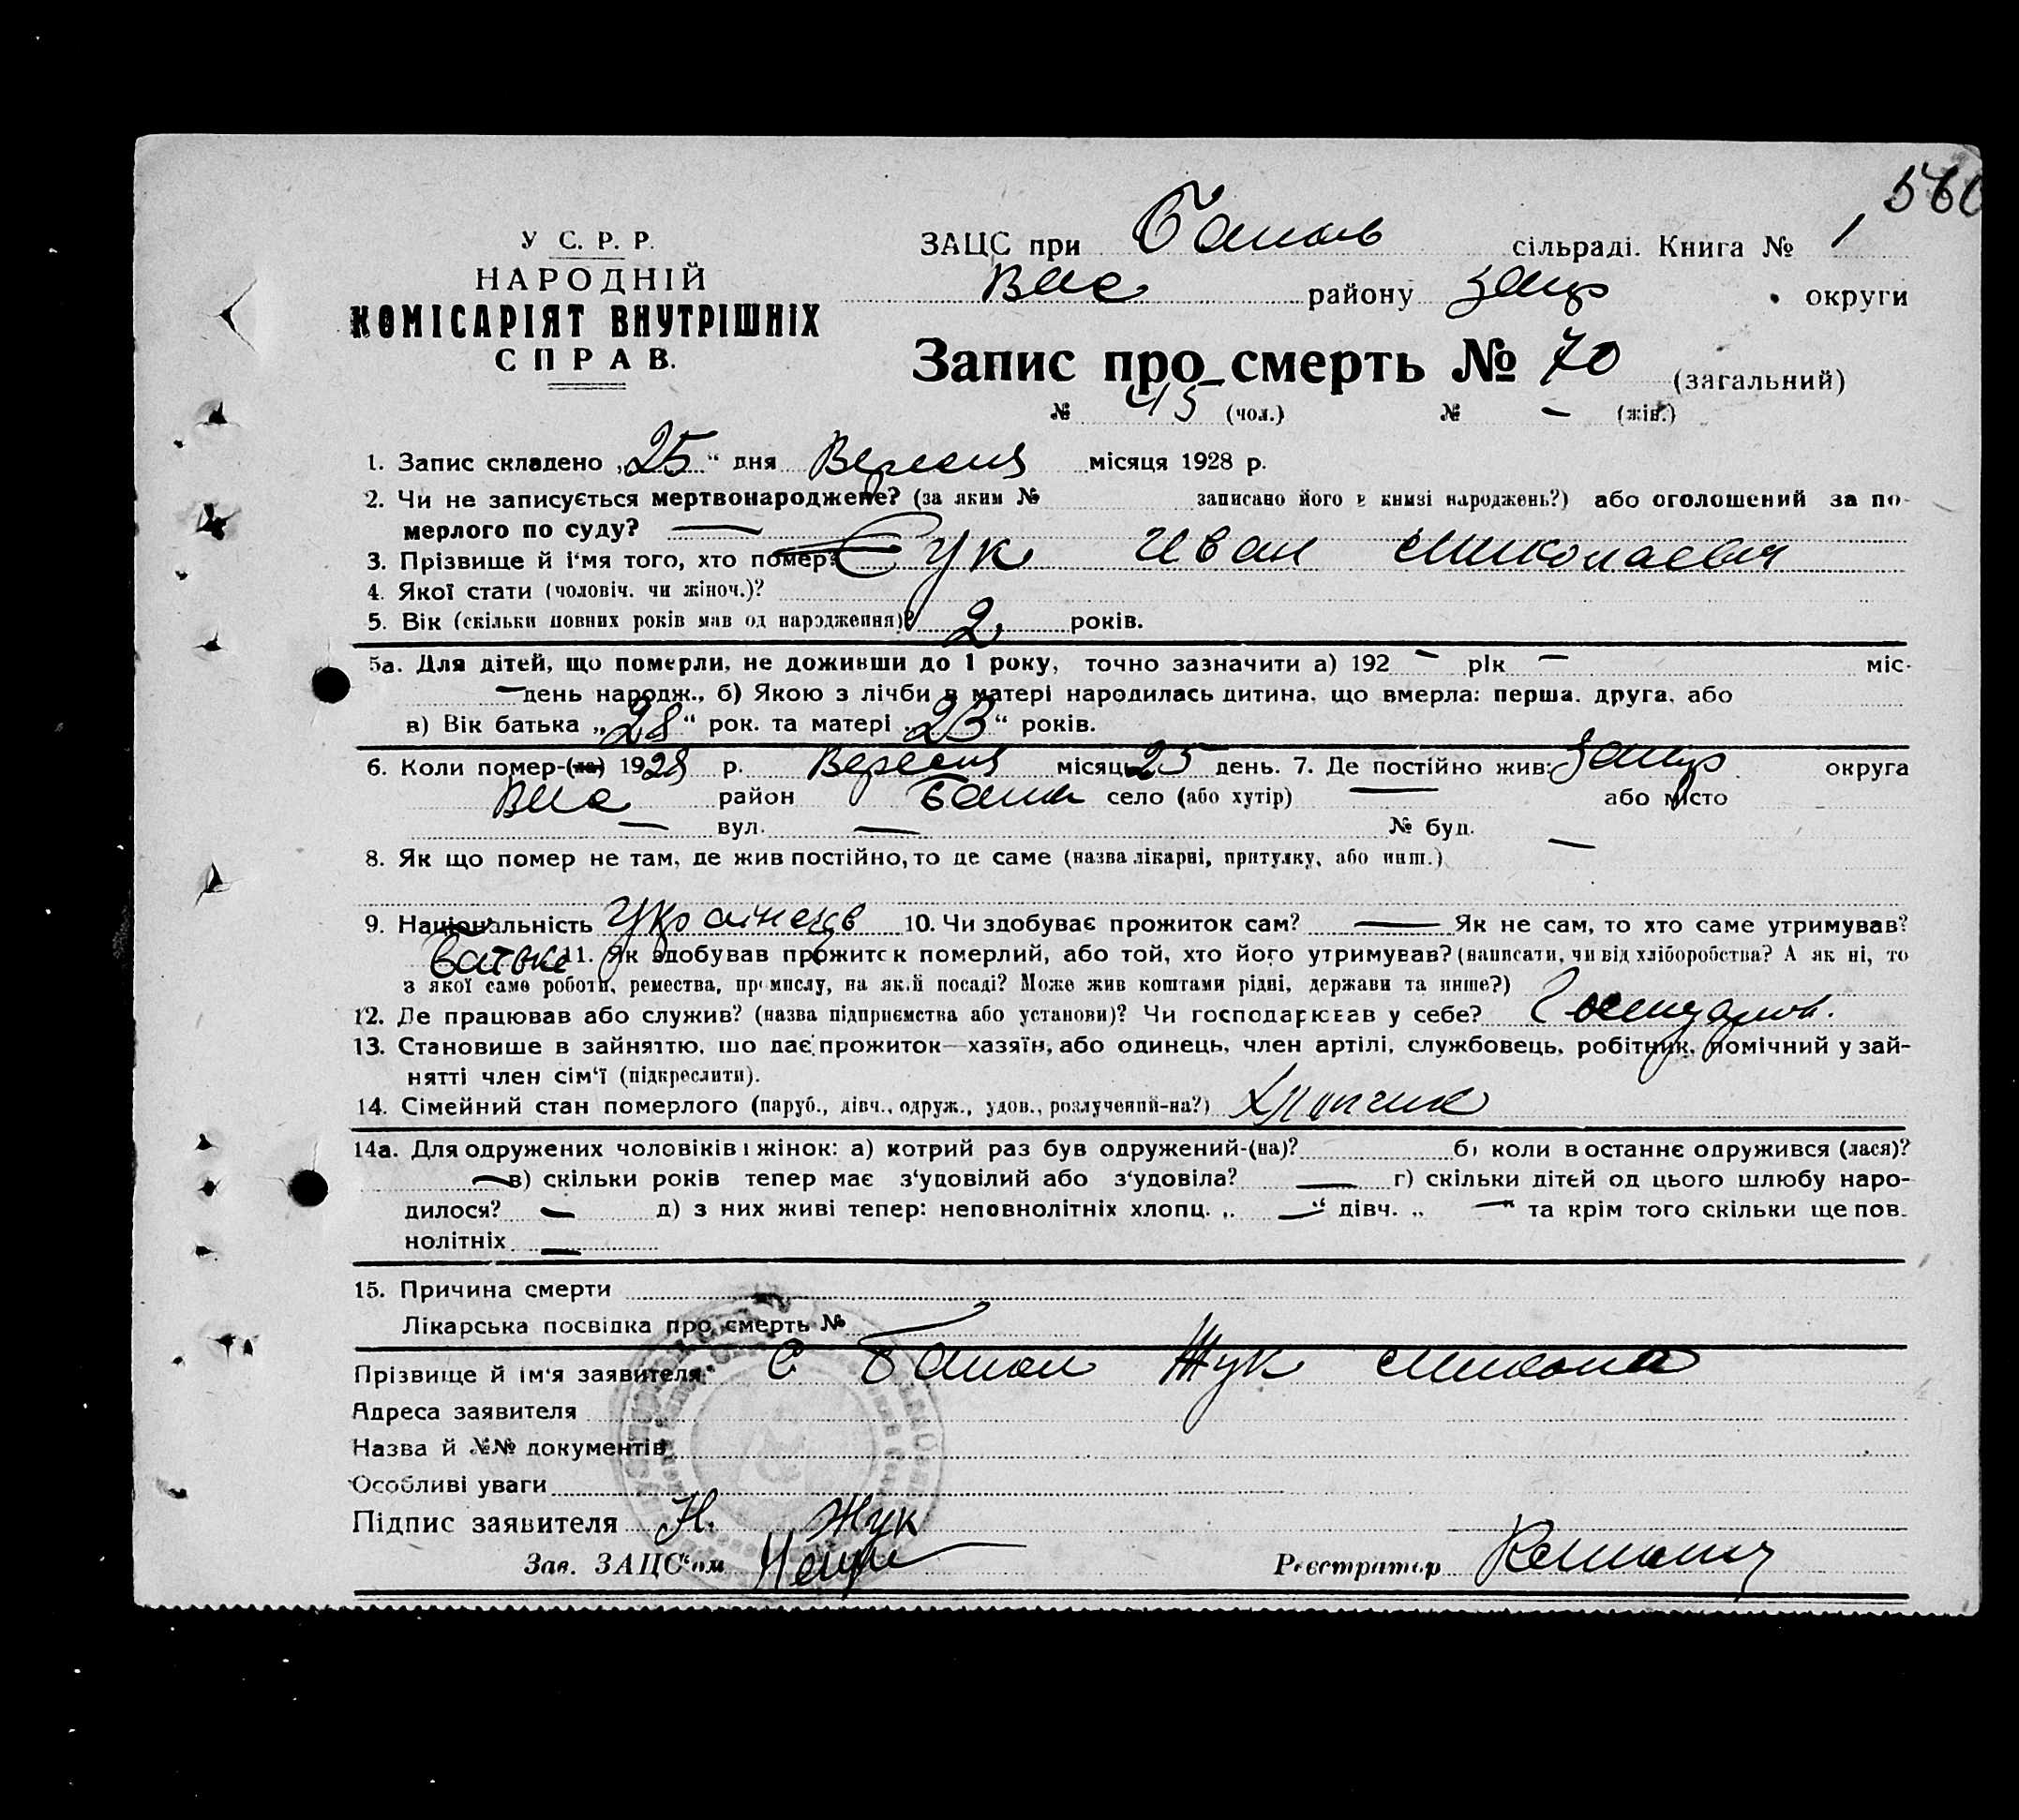 560
У С. Р. Р.
НАРОДНІЙ
КОМІСАРІЯТ ВНУТРІШНІХ
СПРАВ.
ЗАЦС при сільраді. Книга № 1
району округи
Запис про смерть № 70 (загальний)
№ 45 (чол.) № — (жін.)
1. Запис складено „25" дня Вересня місяця 1928 р.
2. Чи не записується мертвонароджене? (за яким № записано його в книзі народжень?) або оголошений за по-
мерлого по суду? —
3. Прізвище й і'мя того, хто помер? Иван Миколаевич
4. Якої стати (чоловіч. чи жіноч.)?
5. Вік (скільки повних років мав од народження)? 2 років.
5а. Для дітей, що померли, не доживши до 1 року, точно зазначити а) 192 — рік — міс-
— день народж., б) Якою з лічби в матері народилась дитина, що вмерла: перша, друга, або
в) Вік батька „28" рок. та матері „23" років.
6. Коли помер-(ла) 1928 р. Вересня місяць 25 день. 7. Де постійно жив: округа
район село (або хутір) — або місто
— вул. — № буд. —
8. Як що помер не там, де жив постійно, то де саме (назва лікарні, притулку, або инш.)
9. Національність Українець 10. Чи здобуває прожиток сам? — Як не сам, то хто саме утримував?
батько 11. Як здобував прожиток померлий, або той, хто його утримував? (написати, чи від хліборобства? А як ні, то
з якої саме роботи, ремества, промислу, на якій посаді? Може жив коштами рідні, держави та инше?)
12. Де працював або служив? (назва підприємства або установи)? Чи господарював у себе?
13. Становище в зайняттю, що дає прожиток—хазяїн, або одинець, член артілі, службовець, робітник, помічний у зай-
нятті член сім'ї (підкреслити).
14. Сімейний стан померлого (паруб., дівч., одруж., удов., розлучений-на?) хлопчик
14а. Для одружених чоловіків і жінок: а) котрий раз був одружений-(на)? б) коли в останнє одружився (лася)?
— в) скільки років тепер має з'удовілий або з'удовіла? — г) скільки дітей од цього шлюбу наро-
дилося? — д) з них живі тепер: неповнолітніх хлопц. „ —" дівч. „ —" та крім того скільки ще пов-
нолітніх —
15. Причина смерти
Лікарська посвідка про смерть №
Прізвище й ім'я заявителя: Жук Микола
Адреса заявителя
Назва й №№ документів
Особливі уваги
Підпис заявителя Н. Жук
Зав. ЗАЦС'ом Реєстратор